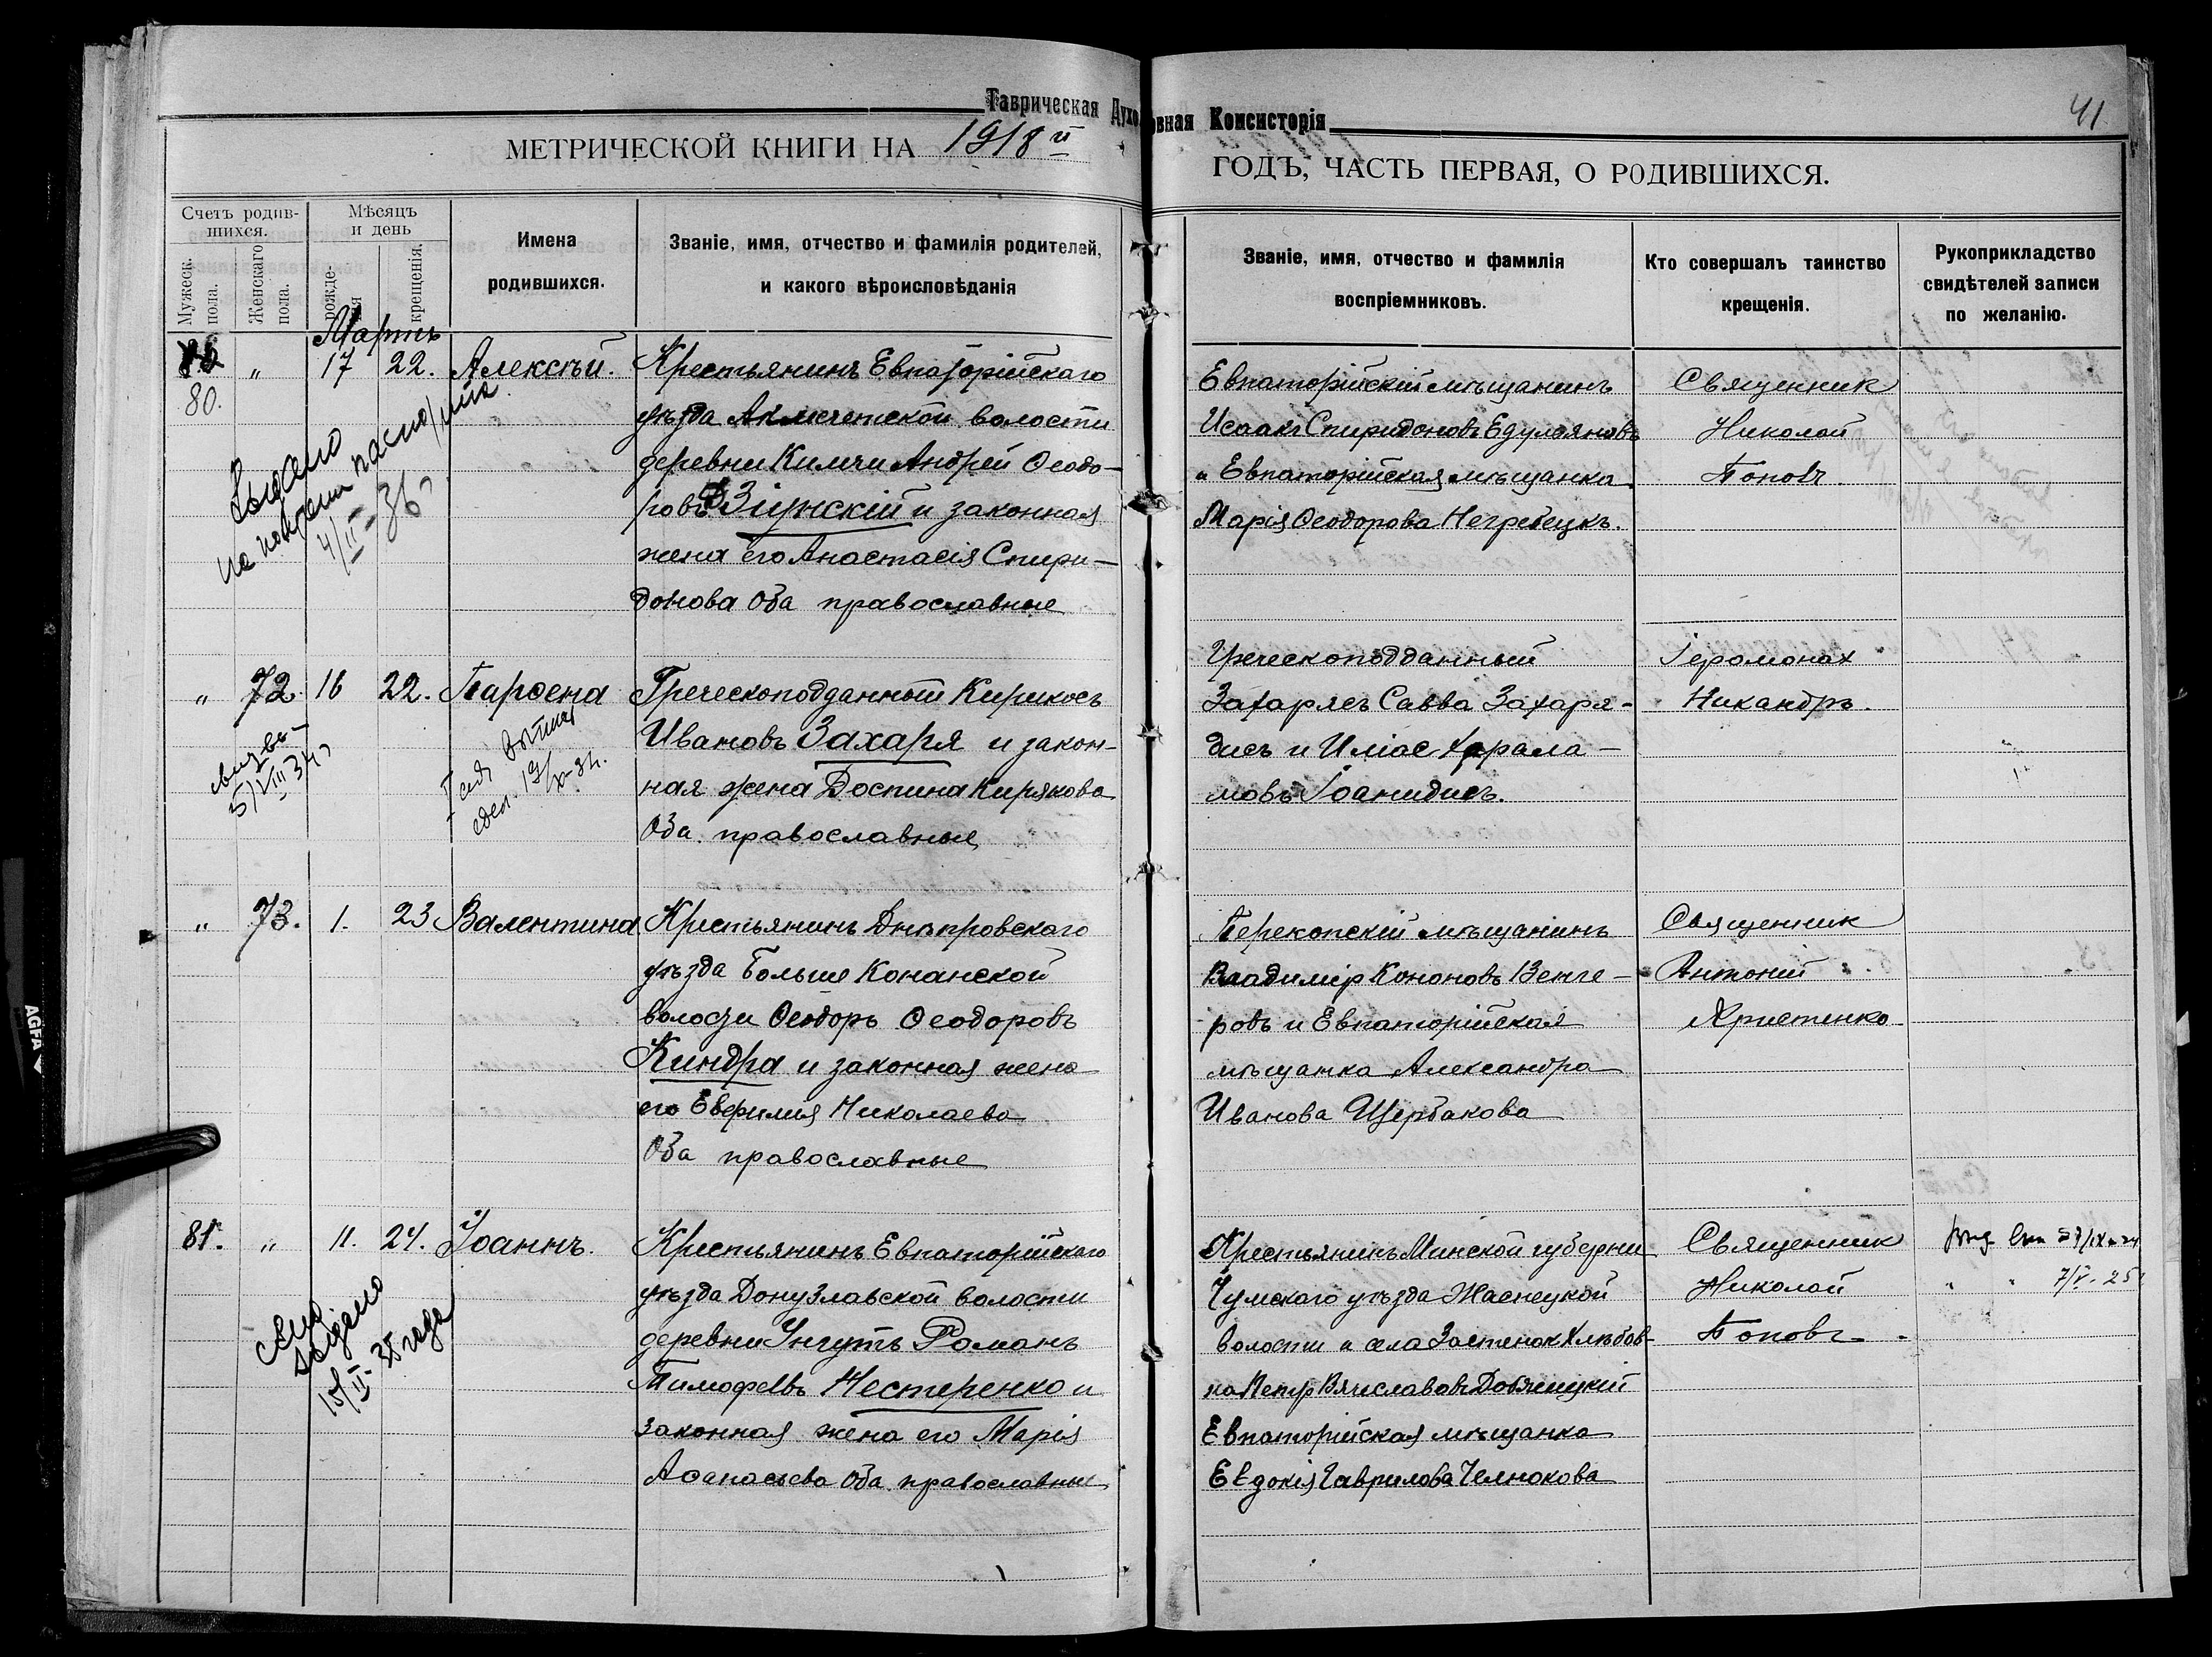 Таврическая Духовная Консисторія
41
МЕТРИЧЕСКОЙ КНИГИ НА 1918 й
ГОДЪ, ЧАСТЬ ПЕРВАЯ, О РОДИВШИХСЯ.
Счетъ родившихся.
Мужеск. пола.
Женскаго пола.
Мѣсяцъ и день
рожденія
крещенія.
Имена родившихся.
Званіе, имя, отчество и фамилія родителей,
и какого вѣроисповѣданія
Званіе, имя, отчество и фамилія
воспріемниковъ.
Кто совершалъ таинство
крещенія.
Рукоприкладство
свидѣтелей записи
по желанію.
Мартъ
80.
„ 17 22. Алексѣй.
Крестьянинъ Евпаторійскаго
уѣзда Акмечетской волости
деревни Кимчи Андрей Ѳеодо-
ровъ и законная
жена его Анастасія Спири-
донова Оба православные
Евпаторійскій мѣщанинъ
Исаакъ Спиридоновъ
и Евпаторійская мѣщанка
Марія Ѳеодорова Негребецкъ.
Священник
Николай
Поповъ
Выдано
4/II-36 г
„ 72. 16 22. Парѳена
Греческоподданный Кирикосъ
Ивановъ Захаря и закон-
ная жена Доспина Кирякова
Оба православные
Греческоподданный
Захарясъ Савва Захаря-
дисъ и Иліас Харала-
мовъ Іоанидисъ.
Іеромонах
Никандръ.
5/VIII 34 г
„ 73. 1. 23 Валентина
Крестьянинъ Днѣпровскаго
уѣзда Больше Копанской
волости Ѳеодоръ Ѳеодоровъ
Киндра и законная жена
его Евфимия Николаева
Оба православные
Перекопскій мѣщанинъ
Владиміръ Кононовъ Венге-
ровъ и Евпаторійская
мѣщанка Александра
Иванова Щербакова
Священник
Антоній
Христенко
81. „ 11. 24. Іоаннъ.
Крестьянинъ Евпаторійскаго
уѣзда Донузлавской волости
деревни Унгутъ Романъ
Тимофеевъ Нестеренко и
законная жена его Марія
Аѳанасьева Оба православные
Крестьянинъ Минской губерни
уѣзда
волости и села Застенок Хлѣбов-
на Петр Вячеславовъ
Евпаторійская мѣщанка
Евдокія Гаврилова Челнокова
Священник
Николай
Поповъ
7/V-25
выдано
года
AGFA